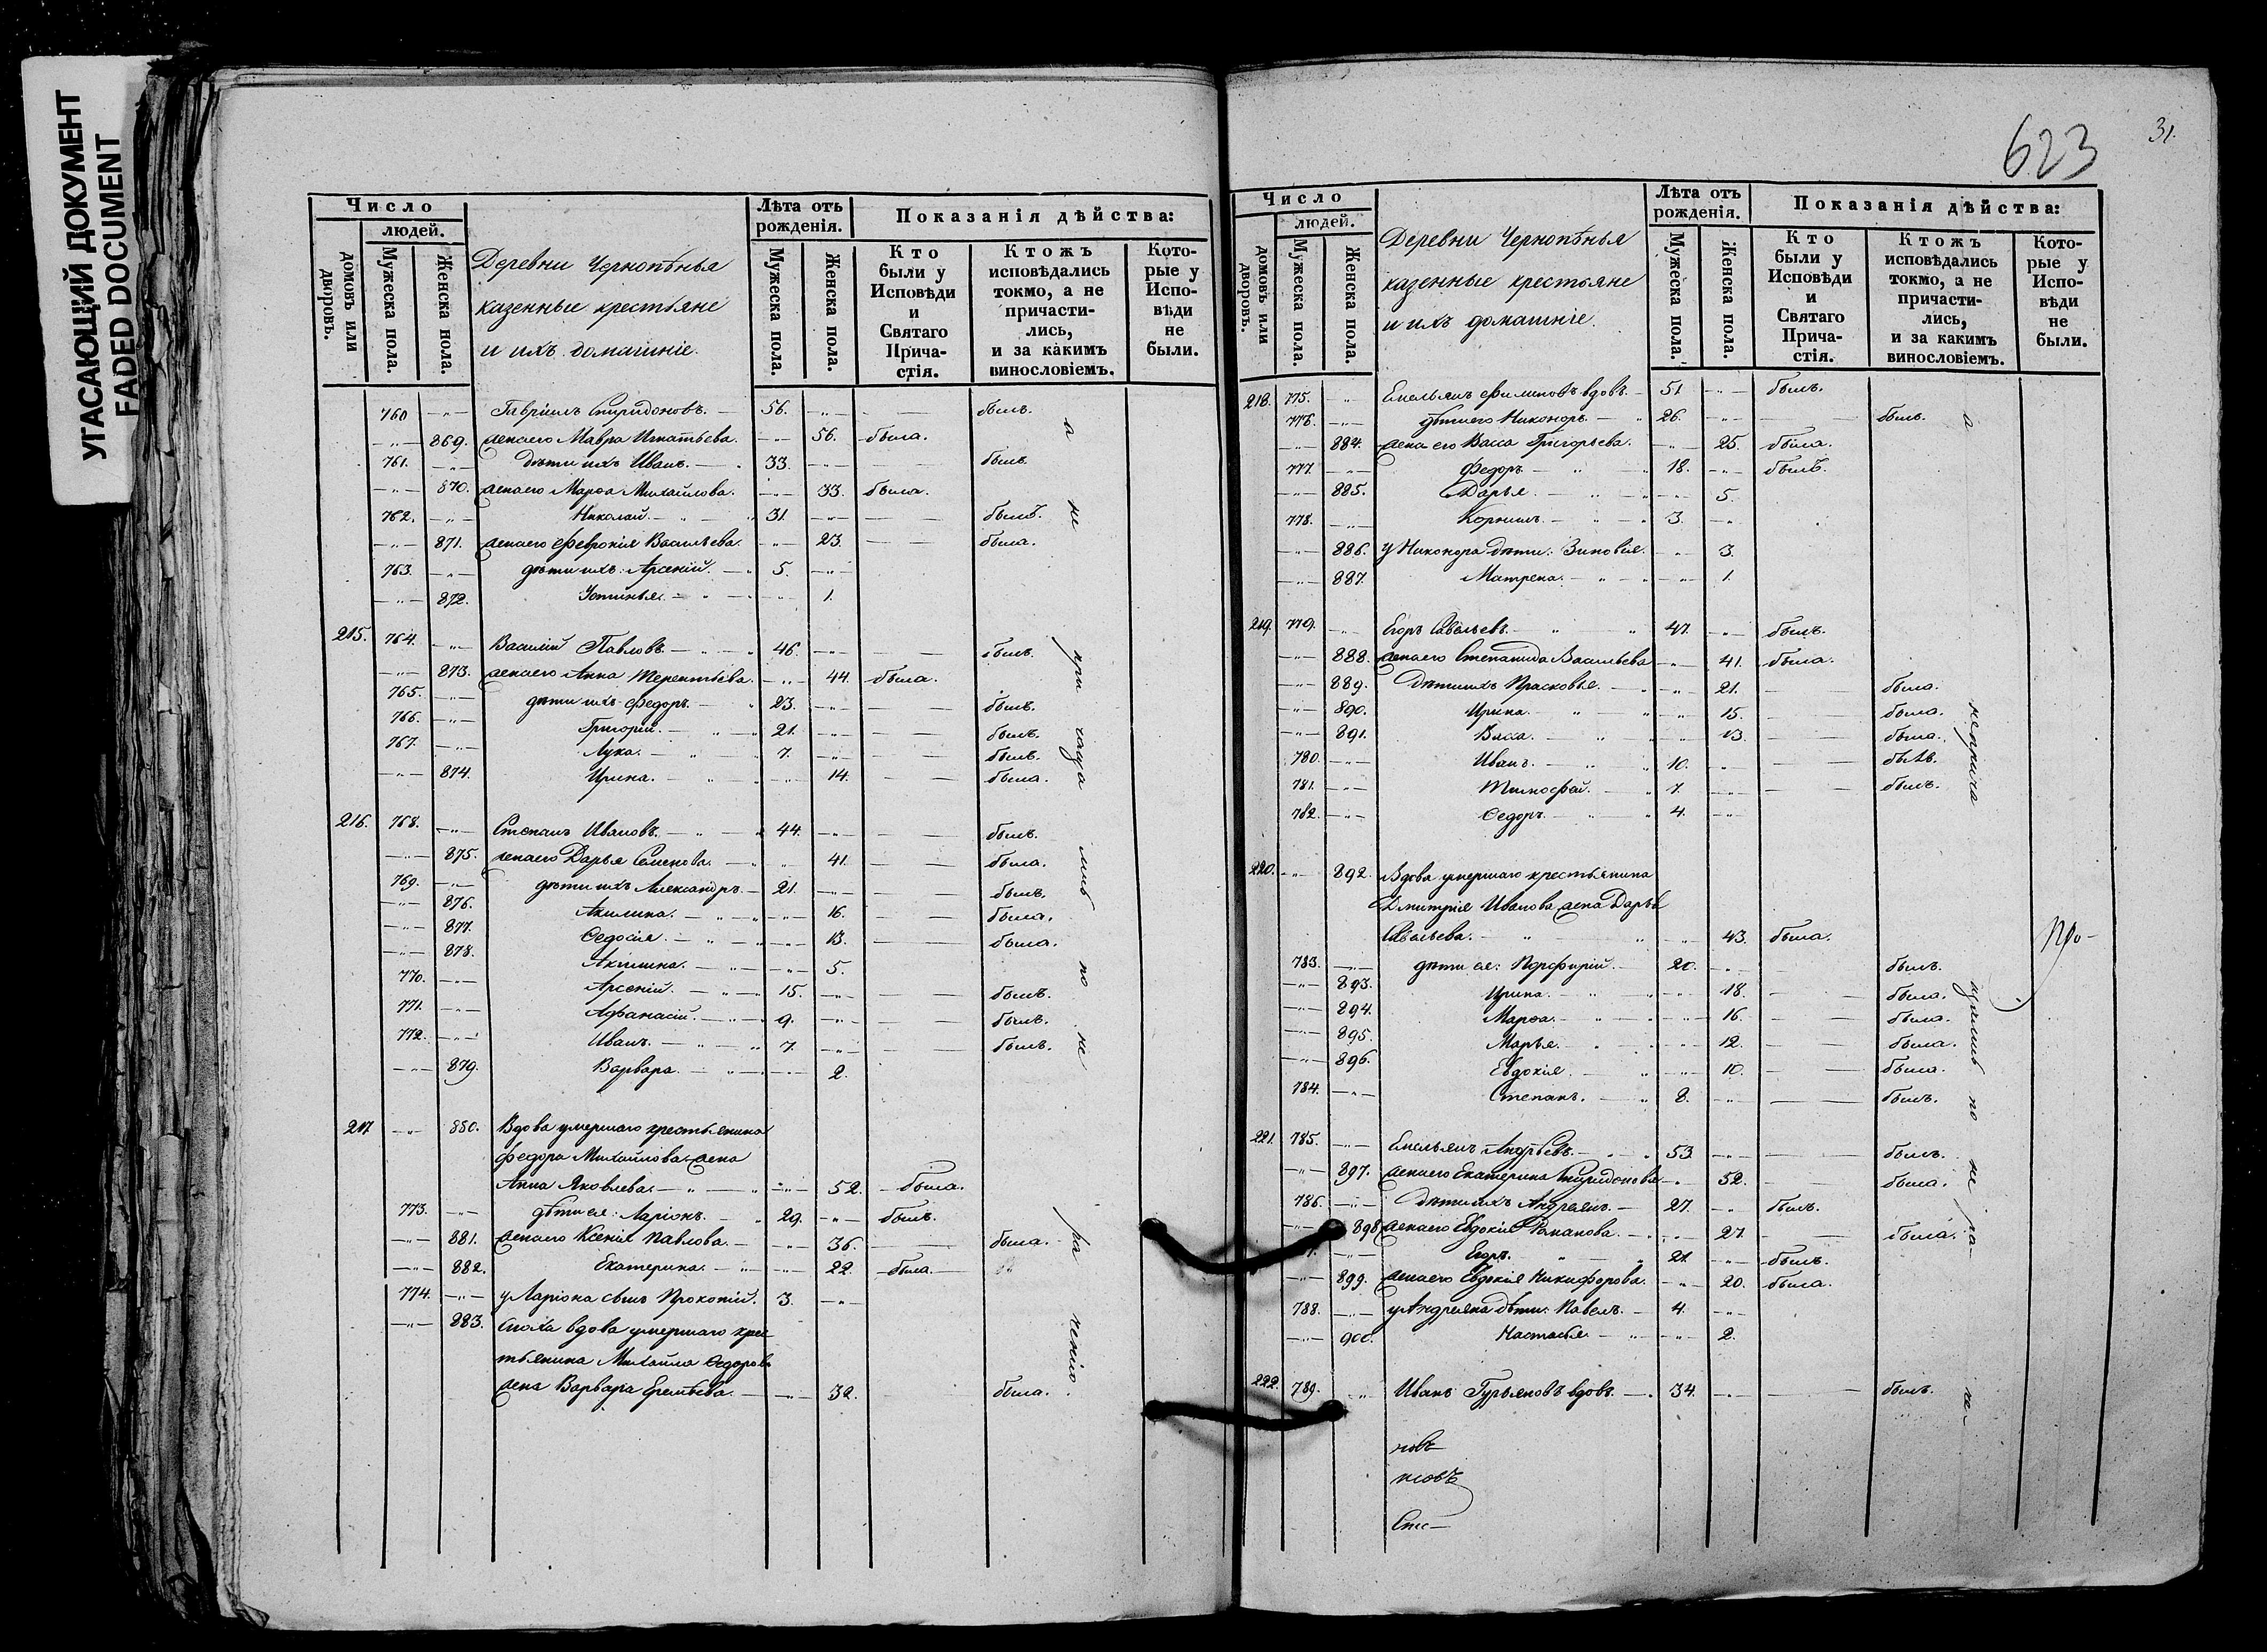 УГАСАЮЩИЙ ДОКУМЕНТ
FADED DOCUMENT
Число
людей.
домовъ или дворовъ.
Мужеска пола.
Женска пола.
Деревни Чернопѣнья
казенные крестьяне
и ихъ домашніе.
Лѣта отъ рожденія.
Мужеска пола.
Женска пола.
Показанія дѣйства:
Кто были у Исповѣди и Святаго Прича-стія.
Ктожъ исповѣдались токмо, а не причасти-лись, и за какимъ винословіемъ.
Кото-рые у Испо-вѣди не были.
760 Гавріилъ Спиридоновъ. 56. былъ.
869. жена его Мавра Игнатьева. 56. была.
761. дѣти ихъ Иванъ. 33. былъ.
870. жена его Марѳа Михайлова. 33. была.
762. Николай. 31. былъ.
871. жена его Февронія Васильева. 23. была.
763. дѣти ихъ: Арсеній. 5.
872. Устинья. 1.
215. 764. Василій Павловъ. 46. былъ.
873. жена его Анна Терентьева. 44. была.
765. дѣти ихъ Федоръ. 23. былъ.
766. Григорій. 21. былъ.
767. Лука. 7. былъ.
874. Ирина. 14. была.
216. 768. Степанъ Ивановъ. 44. былъ.
875. жена его Дарья Семенова. 41. была.
769. дѣти ихъ Александръ. 21. былъ.
876. Акилина. 16. была.
877. Ѳедосія. 13. была.
878. Акилина. 5.
770. Арсеній. 15. былъ.
771. Афанасій. 9. былъ.
772. Иванъ. 7. былъ.
879. Варвара. 2.
217 880. Вдова умершаго крестьянина
Федора Михайлова жена
Анна Яковлева. 52. была.
773. дѣти ея: Ларіонъ. 29. былъ.
881. жена его Ксенія Павлова. 36. была.
882. Екатерина. 22. была.
774. у Ларіона сынъ Прокопій. 3.
883. Сноха вдова умершаго крес
тьянина Михайла Ѳедорова
жена Варвара 32. была.
а не по не ра
623
31.
Число
людей.
домовъ или дворовъ.
Мужеска пола.
Женска пола.
Деревни Чернопѣнья
казенные крестьяне
и ихъ домашніе.
Лѣта отъ рожденія.
Мужеска пола.
Женска пола.
Показанія дѣйства:
Кто были у Исповѣди и Святаго Прича-стія.
Ктожъ исповѣдались токмо, а не причасти-лись, и за какимъ винословіемъ.
Кото-рые у Испо-вѣди не были.
218. 775. Емельянъ Филиповъ вдовъ. 51 былъ.
776. дѣти его Никоноръ. 26. былъ.
884. жена его Васса Григорьева. 25. была.
777. Федоръ 18. былъ.
885. Дарья. 5.
778. Корнилъ. 3.
886. у Никонора дѣти: Зиновія. 3.
887. Матрена. 1.
219. 779. Егоръ Савельевъ. 47. былъ.
888. жена его Степанида Васильева 41. была.
889. дѣти ихъ Прасковья. 21. была.
890. Ирина. 15. была.
891. Васса. 13. была.
780. Иванъ. 10. былъ.
781. Тимофей. 7. былъ.
782. Ѳедоръ. 4.
220. 892. Вдова умершаго крестьянина
Дмитрія Иванова жена Дарья
Савельева. 43. была.
783. дѣти ея: Порфирій. 20. былъ.
893. Ирина. 18. была.
894. Марѳа. 16. была.
895. Марья. 12. была.
896. Евдокія. 10. была.
784. Степанъ. 8. былъ.
221. 785. Емельянъ Андрѣевъ. 53 былъ.
897. жена его Екатерина Спиридонова 52. была.
786. дѣти ихъ Андреянъ. 27. былъ.
898 жена его Евдокія Романова. 27. была.
Егоръ. 21. былъ.
899. жена его Евдокія Никифорова. 20. была.
788. у Андреяна дѣти: Павелъ. 4.
900. Настасья 2.
222. 789. Иванъ Гурьяновъ вдовъ. 34. былъ.
а по не ра-
Про-
новъ